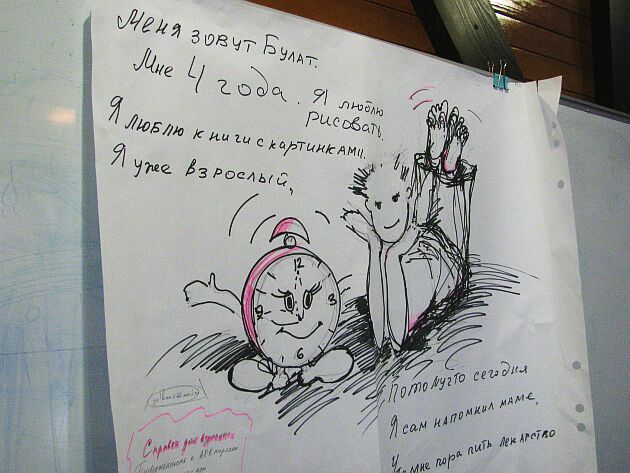 Меня зовут Булат.
Мне 4 года. Я люблю
рисовать.
Я люблю книги с картинками.
Я уже взрослый,
12
3
6
9
Потому что сегодня
Я сам напомнил маме,
мне пора пить лекарство
Справка для взрослых